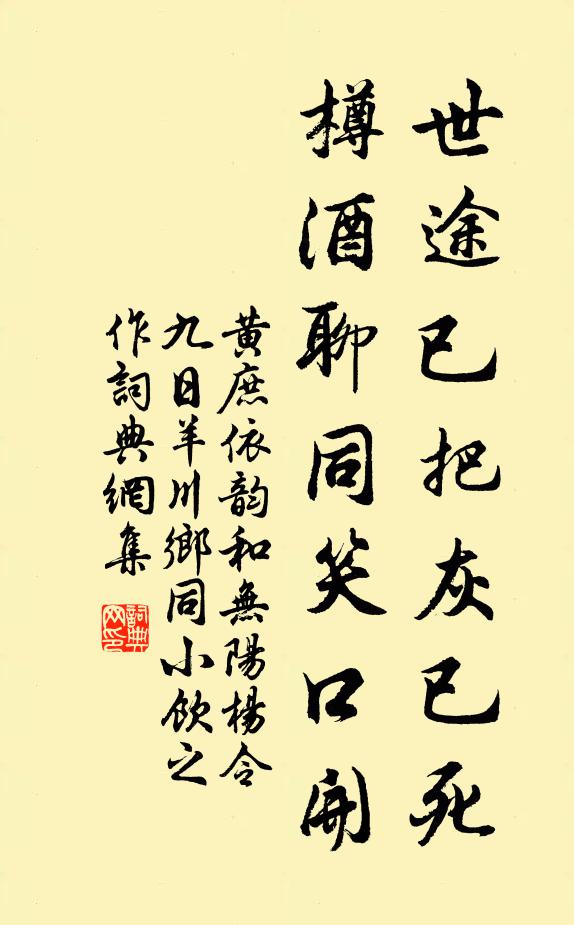 世途已把灰已死
樽酒聊同笑口開
黃庶依韵和無陽楊令
九日羊川鄉同小飲之
作詞典網集
詞典網印